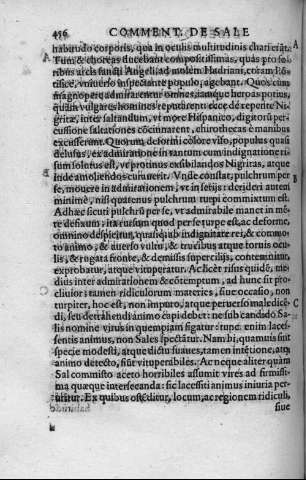 456 COMMENT. DE SALE
habitudo corporis, qua in oculis multitudinis chari erāt.
Tum & choreas ducebant compositissimas, quas pro fo-
ribus arcis sancti Angeli, ad molem Hadriani, coram Pō-
tifice, vniuerso inspectante populo, agebant. Quos cum
magnopere admirarentur omnes, tanque heroas potius,
quàm vulgares homines reputarent: ecce de repente Ni-
gritæ, inter saltandum, vt more Hispanico, digitorū per-
cussione saltationes cōcinnarent, chirothecas è manibus
excusserunt. Quorum deformi colore viso, populus quasi
delusus, ex admiratione in rantum cum indignatione ri-
sum solutus est, vt protinus exsibilandos Nigritas, atque
inde amoliendos curauerit. Vnde constat, pulchrum per
se, mouere in admirationem, vt in serijs: derideri autem
minimè, nisi quatenus pulchrum turpi commixtum est.
Adhæc sicuti pulchrū per se, vt admirabile manet in mē-
te defixum: ita rursum quod per se turpe est, ac deforme,
omnino despicitur, quasi, ab indignitate rei, & commo-
to animo, & auerso vultu, & trucibus atque toruis ocu-
lis, & rugata fronte, & demissis supercilijs, contemnitur,
exprobatur, atque vituperatur. Ac licèt risus quidē, me-
dius inter admirationem & cōtemptum, ad hunc sit pro-
cliuior: tamen ridiculorum materies, siue occasio, non
turpiter, hoc est, non impuro, atque peruerso maledicē-
di, seu detrahendi animo capi debet: ne sub candido Sa-
lis nomine virus in quempiam figatur: tunc enim laces-
sentis animus, non Sales spectātur. Nam bi, quamuis sint
specie modesti, atque dictu suaues, tamen intētione, atque
animo detecto, siūt vituperabiles. Ac neque aliter quàm
Sal commisto aceto horribiles assumit vires ad firmissi-
ma quæque intersecanda: sic lacesiti animus iniuria per-
uritur. Ex quibus ostēditur, locum, ac regionem ridiculi,
siue
A
B
C